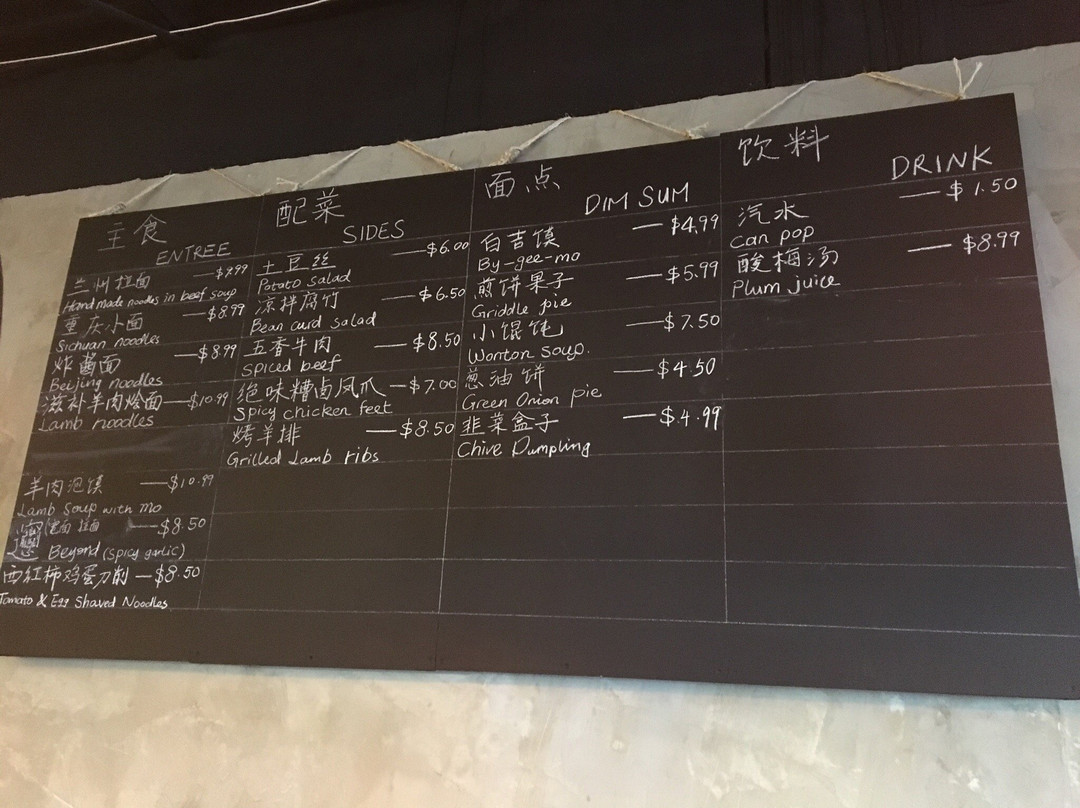 主食
ENTREE
兰州拉面 —$9.99
Hand made noodles in beef soup
重庆小面 —$8.99
Sichuan noodles
炸酱面 —$8.99
Beijing noodles
滋补羊肉烩面 —$10.99
Lamb noodles
羊肉泡馍 —$10.99
Lamb Soup with mo
拉面 —$8.50
Beyond (spicy garlic)
西红柿鸡蛋刀削 —$8.50
Tomato & Egg Shaved Noodles
配菜
SIDES
土豆丝 —$6.00
Potato Salad
凉拌腐竹 —$6.50
Bean curd salad
五香牛肉 —$8.50
Spiced beef
绝味糟卤凤爪 —$7.00
Spicy chicken feet
烤羊排 —$8.50
Grilled Lamb ribs
面点
DIM SUM
白吉馍 —$4.99
By-gee-mo
煎饼果子 —$5.99
Griddle pie
小馄饨 —$7.50
Wonton Soup.
葱油饼 —$4.50
Green Onion pie
韭菜盒子 —$4.99
Chive Dumpling
饮料
DRINK
汽水 —$1.50
Can pop
酸梅汤 —$8.99
Plum juice